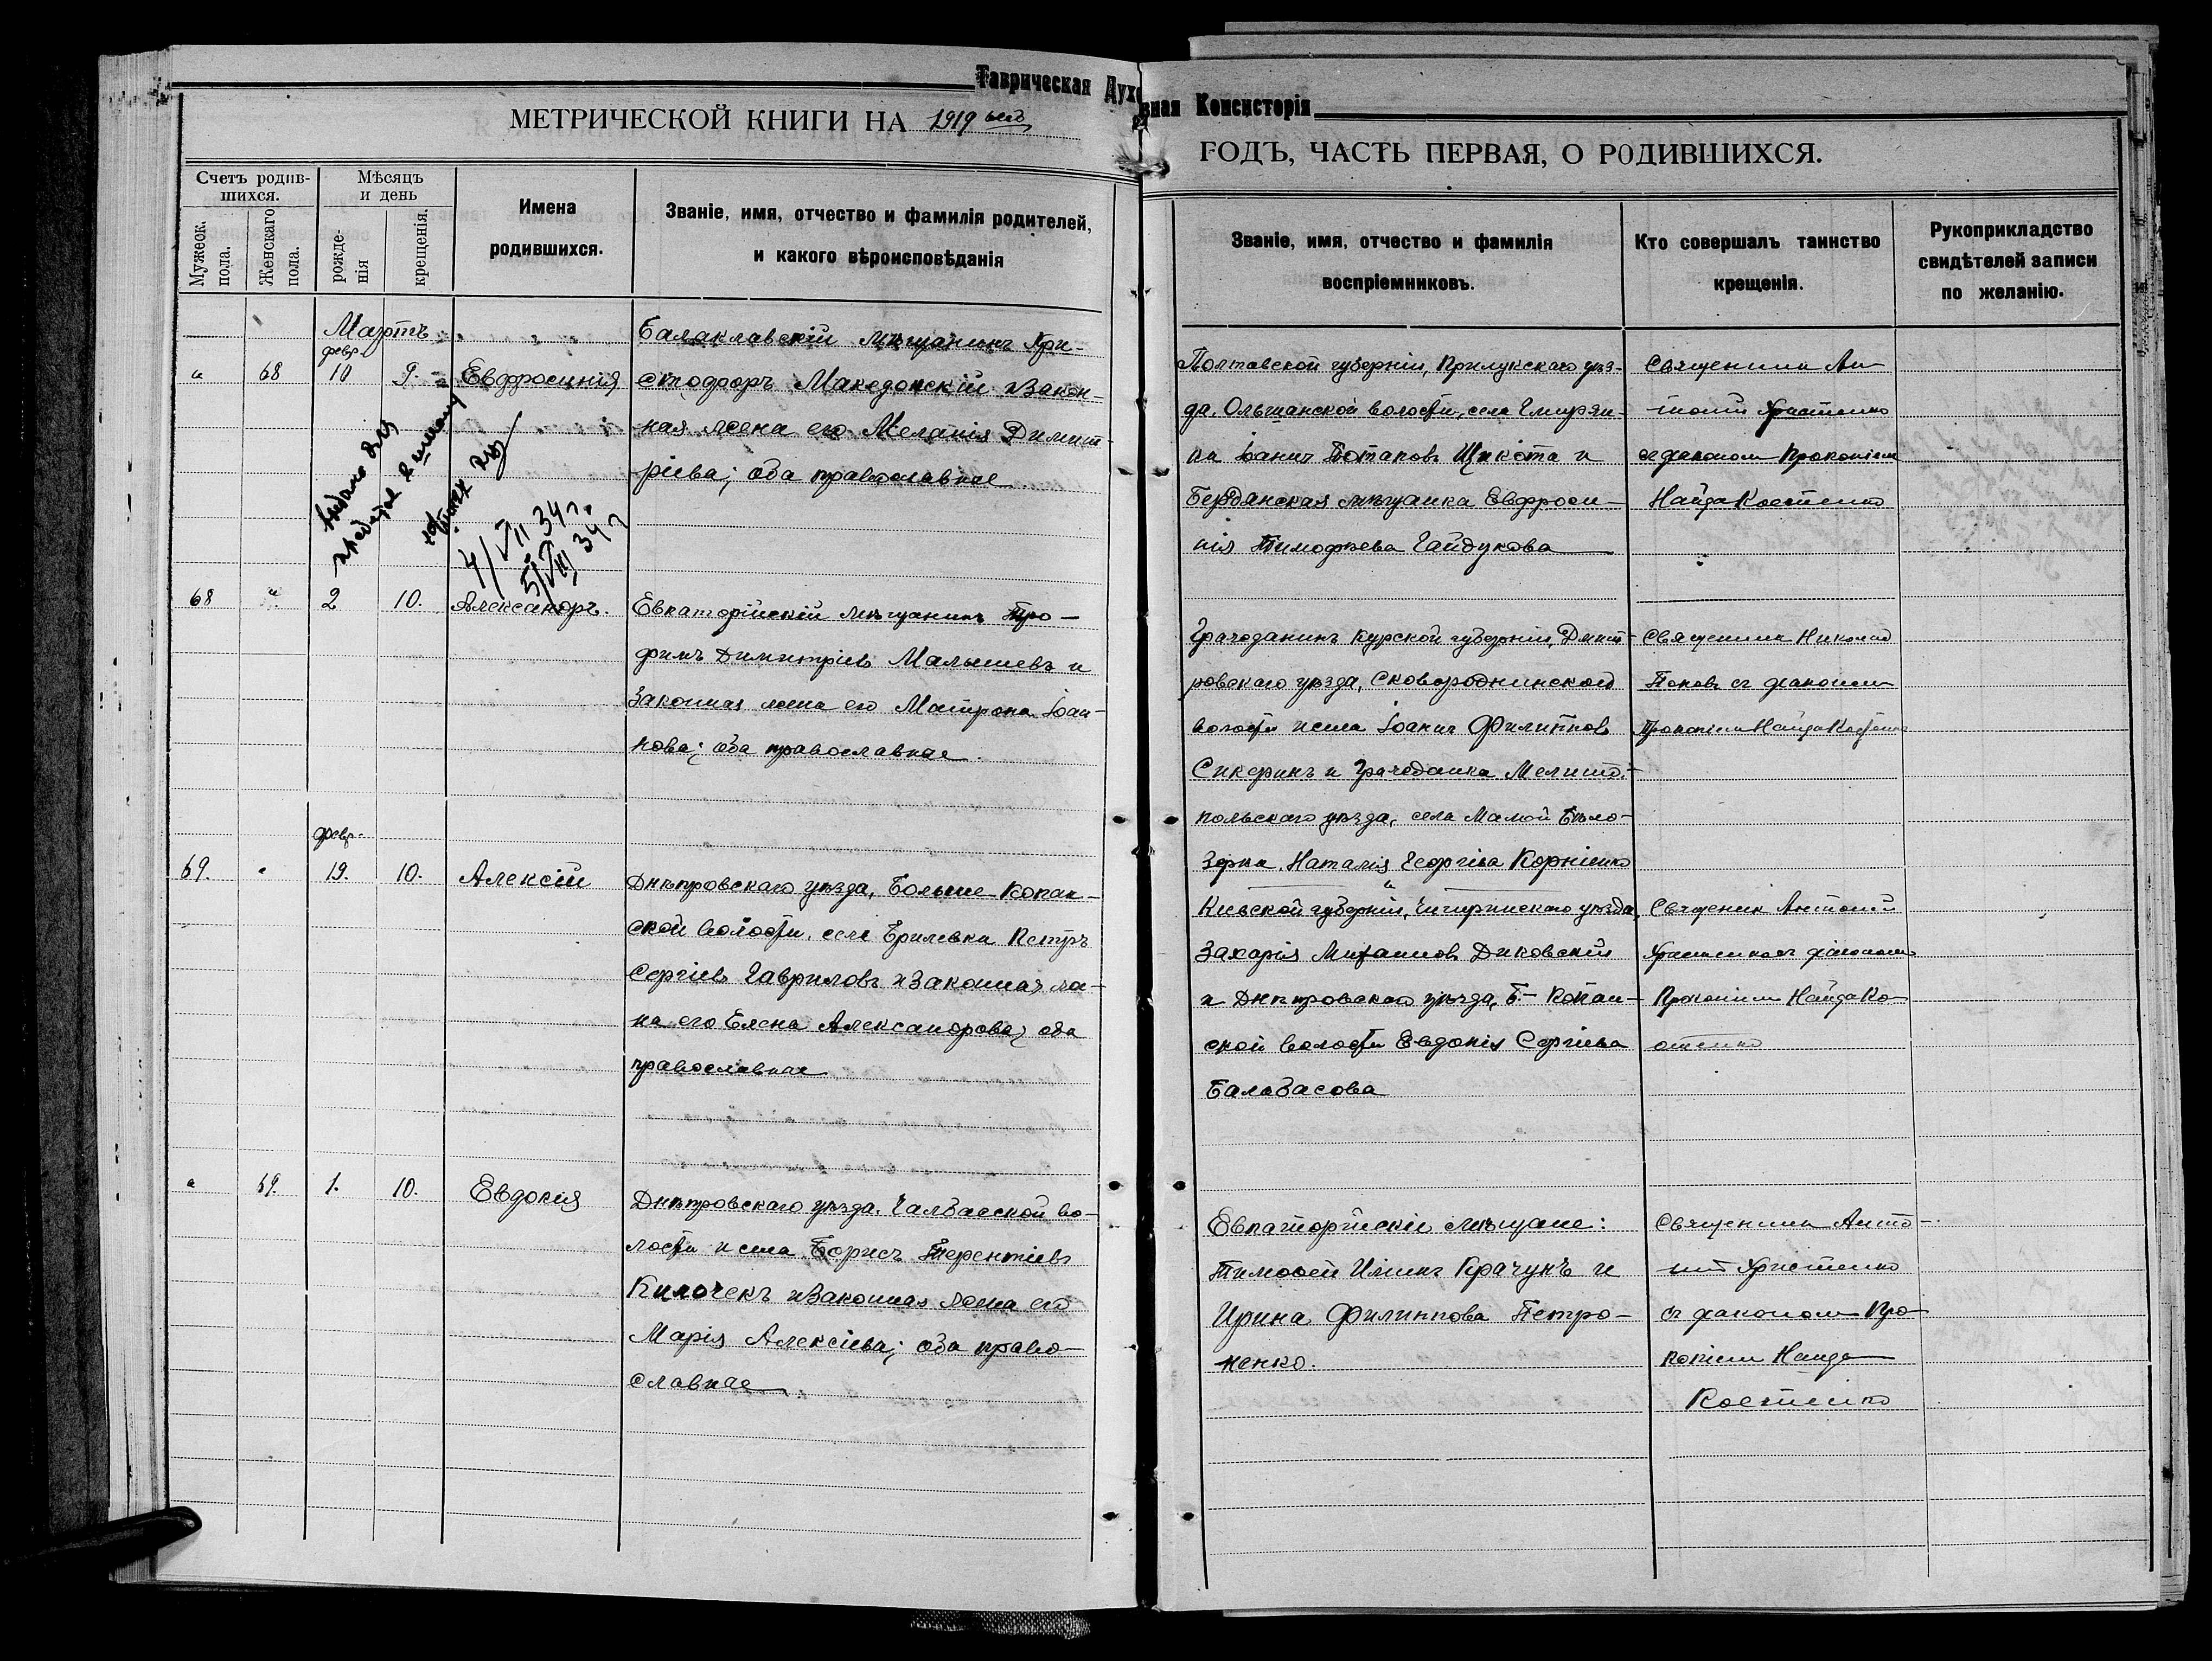 Таврическая Духовная Консисторія
МЕТРИЧЕСКОЙ КНИГИ НА 1919 ый
ГОДЪ, ЧАСТЬ ПЕРВАЯ, О РОДИВШИХСЯ.
Счетъ родив-
шихся.
Мужеск.
пола.
Женскаго
пола.
Мѣсяцъ
и день
рожде-
нія
крещенія.
Имена
родившихся.
Званіе, имя, отчество и фамилія родителей,
и какого вѣроисповѣданія
Званіе, имя, отчество и фамилія
воспріемниковъ.
Кто совершалъ таинство
крещенія.
Рукоприкладство
свидѣтелей записи
по желанію.
Мартъ
февр.
" 68 10 9. Евфросинія
Балаклавскій мѣщанинъ Хри-
стофоръ Македонскій и закон-
ная жена его Меланія Димит-
ріева; оба православные
Полтавской губерніи, Прилукскаго уѣз-
да, Ольшанской волости, села
Іоаннъ Потаповъ и
Бердянская мѣщанка Евфроси-
нія Тимофеева Гайдукова
Священникъ Ан-
тоній Христенко
съ діакономъ Прокопіемъ
Найда Костенко
4/VII 34 г.
5/VIII 34 г
68 " 2 10. Александръ.
Евпаторійскій мѣщанинъ Тро-
фимъ Димитріевъ Малышевъ и
законная жена его Матрона Іоан-
нова; оба православные.
Гражданинъ Курской губерніи, Дмит-
ровскаго уѣзда, Сковороднинской
волости и села Іоаннъ Филиппов
Сикеринъ и гражданка Мелито-
польскаго уѣзда, села Малой Бѣло-
зерки Наталія Георгіева Корніенко
Священникъ Николай
Поповъ съ діакономъ
Прокопіемъ Найда Костенко
февр.
69. " 19. 10. Алексій
Днѣпровскаго уѣзда, Больше-Копан-
ской волости, села Брилевки Петръ
Сергіевъ Гавриловъ и законная же-
на его Елена Александрова; оба
православные
Кіевской губерніи, Чигиринскаго уѣзда,
Захарія Михаиловъ Диковскій
и Днѣпровскаго уѣзда, Б.-Копан-
ской волости Евдокія Сергіева
Бальбасова
Священник Антоній
Христенко съ діакономъ
Прокопіем Найда Ко-
стенко
" 69. 1. 10. Евдокія
Днѣпровскаго уѣзда, Чалбасской во-
лости и села Борисъ Терентіевъ
Килочекъ и законная жена его
Марія Алексіева; оба право-
славные
Евпаторійскіе мѣщане:
Тимофей Ильинъ Крачунъ и
Ирина Филиппова Петро-
ненко.
Священникъ Анто-
ній Христенко
съ діакономъ Про-
копіем Найда
Костенко